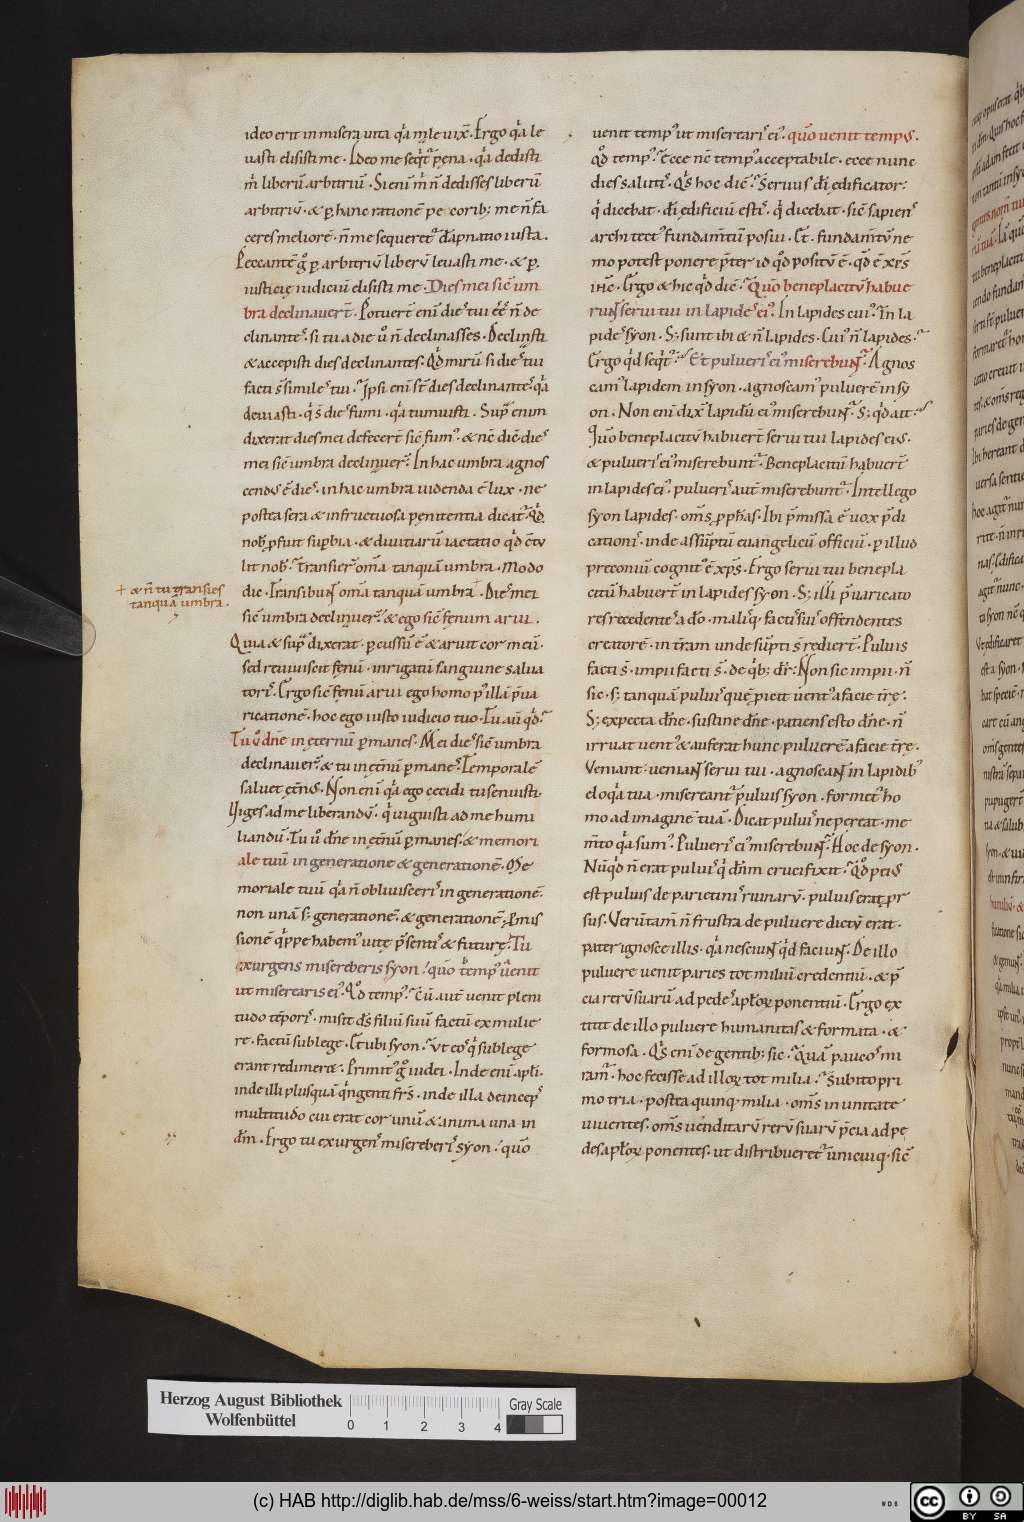 ideo erit in misera uita q̄a m̄le uix̄. Ergo q̄a le
uasti elisisti me. Ideo me seq̄t᷑ pęna. q̄a dedisti
m̄ liberū arbitriū. Si eni m̄ n̄ dedisses liberū
arbitriū. & ꝑ hanc rationē pecorib; me n̄ fa
ceres meliorē. n̄ me sequeret᷑ dāpnatio iusta.
Peccantē g̊ ꝑ arbitriū liberū leuasti me. & ꝑ
iusticię iudiciū elisisti me. Dies mei sic̄ um
bra declinauert̄. Potuert̄ eni dieˢ tui eē̄ n̄ de
clinanteˢ. si tu a die ů n̄ declinasses. Declinasti
& accepisti dies declinantes. Qd̄ mirū si dieˢ tui
facti s̄ simileˢ tui. Ipsi eni st̄ dies declinanteˢ q̄a
deuiasti. q̄ s̄ dieˢ fumi. q̄a tumuisti. Sup̄ enim
dixerat dies mei defecert̄ sic̄ fumꝰ. & nc̄ dic̄ dieˢ
mei sic̄ umbra declinuer̄. In hac umbra agnos
cendꝰ ē dieˢ. in hac umbra uidenda ē lux. ne
postea sera & infructuosa pęnitentia dicat᷑. Qd̄
nob̄ ꝓfuit supbia. & diuitiarū iactatio qd̄ c̄tu
lit nob̄. Transierˢ om̄a tanquā umbra. Modo
die. Transibun̄t om̄a tanquā umbra. + Dieˢ mei
sic̄ umbra declinuer̄. & ego sic̄ fęnum arui.
+ & n̄ tu transies
tanquā umbra.
Quia & sup̄ dixerat. ꝑcussū ē & aruit cor meū.
sed reuiuiscit fęnū. inrigatū sanguine salua
toriˢ. Ergo sic̄ fęnū arui ego homo pˢ illā p̄ua
ricationē. hoc ego iusto iudicio tuo. Tu aū qd̄.
Tu ů dn̄e in ęternū ꝑmanes. Mei dieˢ sic̄ umbra
declinauer̄. & tu in ęt̄nū ꝑmaneˢ. Temporalē
saluet ęt̄nꝰ. Non eni q̄a ego cecidi tu senuisti.
Uiges ad me liberandū. q̄ uiguisti ad me humi
liandū. Tu ů dn̄e in ęt̄nū ꝑmanes. & memori
ale tuū in generatione & generationē. Me
moriale tuū q̄a n̄ obliuisceriˢ in generationē.
non unā s; generationē. & generationē. Ꝓmis
sionē q̄ppe habemꝰ uitę p̄sentiˢ & futurę. Tu
exurgens misereberis syon. quō tempꝰ uenit
ut miserearis eiꝰ. Qd̄ tempꝰ. Cū aut̄ uenit pleni
tudo tēporiˢ. misit ds̄ filiū suū factū ex mulie
re. factū sub lege. Et ubi syon. Vt eoˢ q̄ sub lege
erant redimeret. Primitꝰ g̊ iudei. Inde eni apl̄i.
inde illi plusquā q̄ngenti frs̄. inde illa deincepˢ
multitudo cui erat cor unū & anima una in
dm̄. Ergo tu exurgenˢ misereberiˢ syon. quō
uenit tempꝰ ut misereariˢ eiꝰ. quō uenit tempꝰ.
Qd̄ tempꝰ. Ecce nc̄ tempꝰ acceptabile. ecce nunc
dies salutiˢ. Q̄s hoc dic̄. Seruus di̅ edificator.
q̄ dicebat. di̅ edificiū estiˢ. q̄ dicebat. sic̄ sapienˢ
architectꝰ fundam̄tū posui. Et. fundam̄tū ne
mo potest ponere p̄ter id qd̄ positū ē. qd̄ ē xp̄s
ihc̄. Ergo & hic qd̄ dic̄. Quō beneplacitū habue
run̄t serui tui in lapideˢ eiꝰ. In lapides cuiꝰ. In la
pideˢ syon. S; sunt ibi & n̄ lapides. Cuiꝰ n̄ lapides.
Ergo qd̄ seq̄t᷑. Et pulueriˢ eiꝰ miserebun̄t᷑. Agnos
camꝰ lapidem in syon. agnoscamꝰ puluerē in sy
on. Non eni dix̄ lapidū eiꝰ miserebun̄t᷑. S; qd̄ ait.
Quō beneplacitū habuert̄ serui tui lapides eiꝰ.
& pulueriˢ eiꝰ miserebunt᷑. Beneplacitū habuert̄
in lapides eiꝰ. pulueriˢ aut̄ miserebunt᷑. Intellego
syon lapides. om̄s ꝓph̄as. Ibi p̄missa ē uox p̄di
cationiˢ. inde assūptū euangelicū officiū. ꝑ illud
p̄conium cognitꝰ ē xp̄s. Ergo serui tui benepla
citū habuert̄ in lapides syon. S; illi p̄uaricato
res recedenteˢ a do̅. maliˢq̄ factiˢ suiˢ offendentes
creatorē. in t̄ram unde sūpti s̄ rediert̄. Puluis
facti s̄. impii facti s̄. de q̄b; dr̄. Non sic impii. n̄
sic. s; tanquā puluiˢ quę ꝓicit uentꝰ a facie t̄rę.
S; expecta dn̄e. sustine dn̄e. patiens esto dn̄e. n̄
irruat uentꝰ & auferat hunc puluerē a facie t̄re.
Veniant. uenian̄t serui tui. agnoscan̄t in lapidibꝰ
eloq̄a tua. misereant᷑ puluis syon. formet᷑ ho
mo ad imaginē tuā. Dicat puluiˢ ne pereat. me
m̄to q̄a sumꝰ. Pulueriˢ eiꝰ miserebun̄t᷑. Hoc de syon.
Nūqd̄ n̄ erat puluiˢ q̄ dn̄m crucifixit. Qd̄ peiꝰ
est puluis de parietiniˢ ruinarū. puluis erat ꝓr
sus. Verūtam̄ n̄ frustra de puluere dictū erat.
pater ignosce illis. q̄a nesciun̄t qd̄ faciun̄t. De illo
puluere uenit paries tot miliū credentiū. & p̄
cia rerū suarū ad pedeˢ aplōꝝ ponentiū. Ergo ex
titit de illo puluere humanitas & formata. &
formosa. Q̄s eni de gentib; sic. Quā paucoˢ mi
ramˢ. hoc fecisse ad illoꝝ tot milia. Subito pri
mo tria. postea quinq; milia. om̄s in unitate
uiuentes. om̄s uenditarū rerū suarū p̄cia ad pe
des aplōꝝ ponentes. ut distribueret᷑ unicuiq; sic̄
Herzog August Bibliothek
Wolfenbüttel
0 1 2 3 4
Gray Scale
(c) HAB http://diglib.hab.de/mss/6-weiss/start.htm?image=00012
cc BY SA